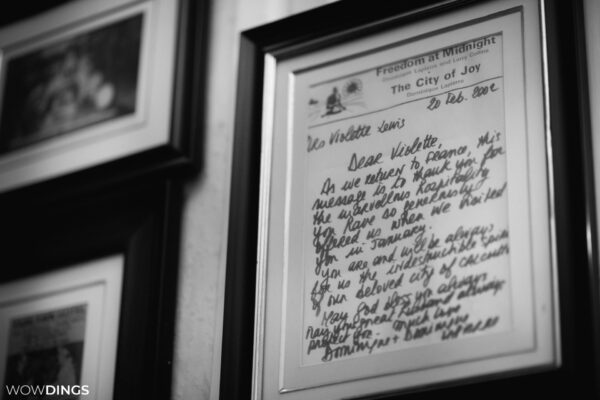 Freedom at Midnight
Dominique Lapierre and Larry Collins
The City of Joy
Dominique Lapierre
20 Feb. 2002
Violette
Dear Violette,
As we return to France, this
message is to thank you for
the marvellous hospitality
you have so generously
offered us when we visited
you in January.
You are and will be always
for us the indestructible
of our beloved city of Calcutta
May God bless you always
may your great husband always
protect you. much love
Dominique + Dominique
Lapierre
WOWDINGS